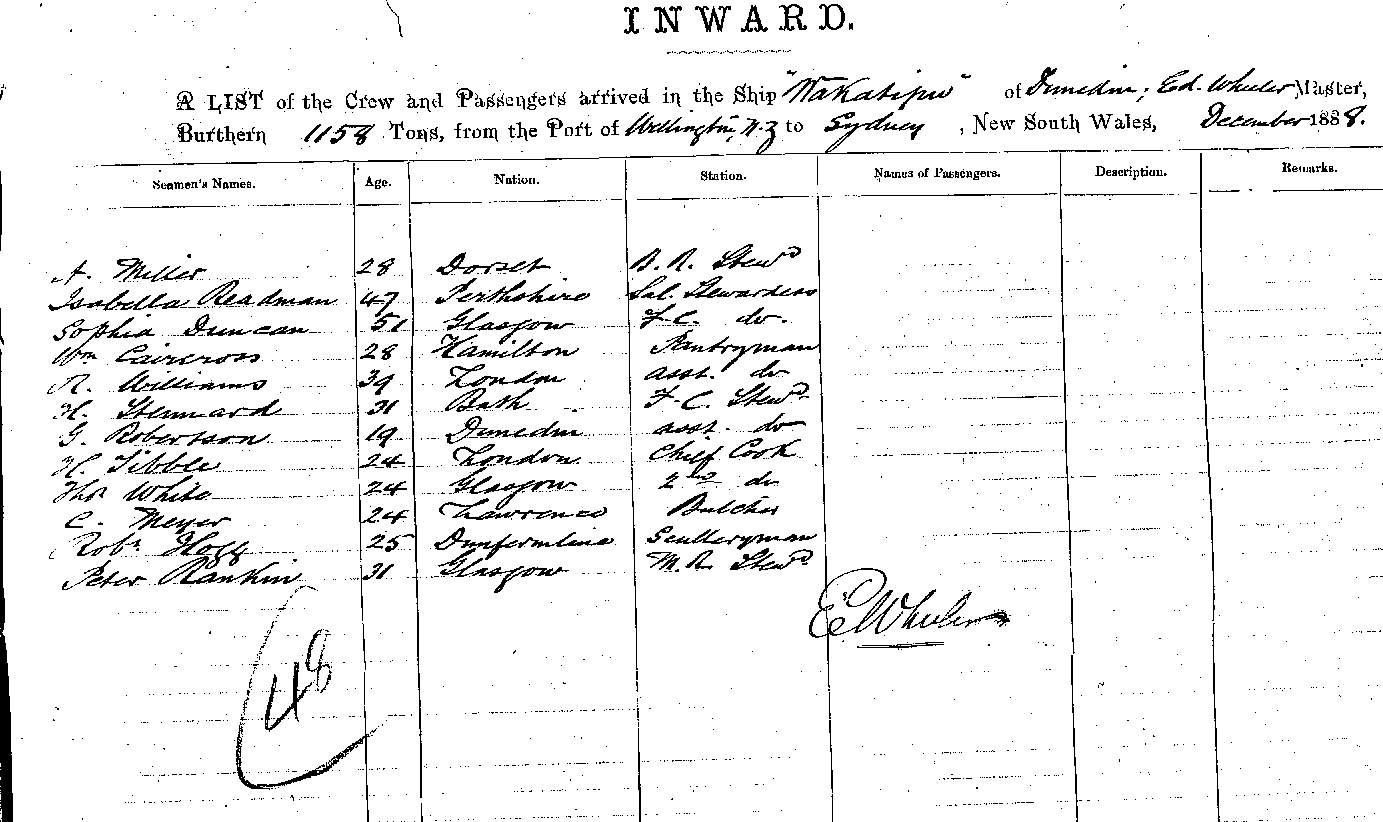 INWARD.
A LIST of the Crew and Passengers arrived in the Ship "Wakatipu" of Dunedin, Ed. Wheeler Master,
Burthern 1158 Tons, from the Port of Wellington, N.Z to Sydney, New South Wales, December 1888.
Seamen's Names. Age. Nation. Station. Names of Passengers. Description. Remarks.
A. Miller 28 Dorset B. R. Stewd
Isabella Readman 47 Perthshire Sal. Stewardess
Sophia Duncan 51 Glasgow F. C. do.
Wm Caircross 28 Hamilton Pantryman
R. Williams 39 London asst. do
H. Stennard 31 Bath F. C. Stewd
G. Robertson 19 Dunedin asst. do
H. Tibble 24 London Chief Cook
Thos White 24 Glasgow 2nd do
C. Meyer 24 Lawrence Butcher
Robt Hogg 25 Dunfermline Sculleryman
Peter Rankin 31 Glasgow M. R. Stewd
E Wheeler
48